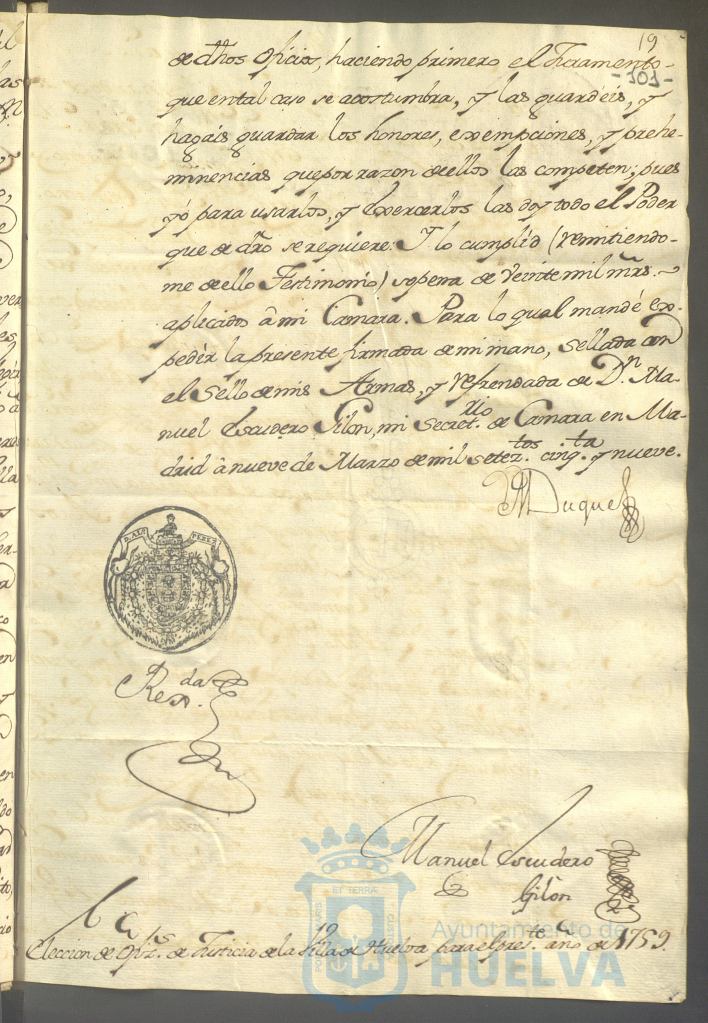 19
-101-
de dhos Oficios, haciendo primero el Juramento
que en tal caso se acostumbra, y las guardeis, y
hagais guardar los honores, exempciones, y prehe-
minencias que por razon de ellos las competen; pues
yó para usarlos, y exercerlos las doy todo el Poder
que de dro se requiere. Y lo cumplid (remitiendo-
me de ello Testimonio) sopena de veinte mil mrs.
aplicados â mi Camara. Para lo qual mandé ex-
pedir la presente firmada de mi mano, sellada con
el Sello de mis Armas, y refrendada de Dn. Ma-
nuel Escudero Gilon, mi Secretrio. de Camara en Ma-
drid â nueve de Marzo de mil seteztos. cinqta. y nueve.
Duque
D. ALO PEREZ
Refda.
Manuel Escudero
Gilon
Eleccion de Ofiz. de Justicia de la Villa de Huelva para el preste. año de 1759.
ET TERRÆ
Ayuntamiento de
HUELVA